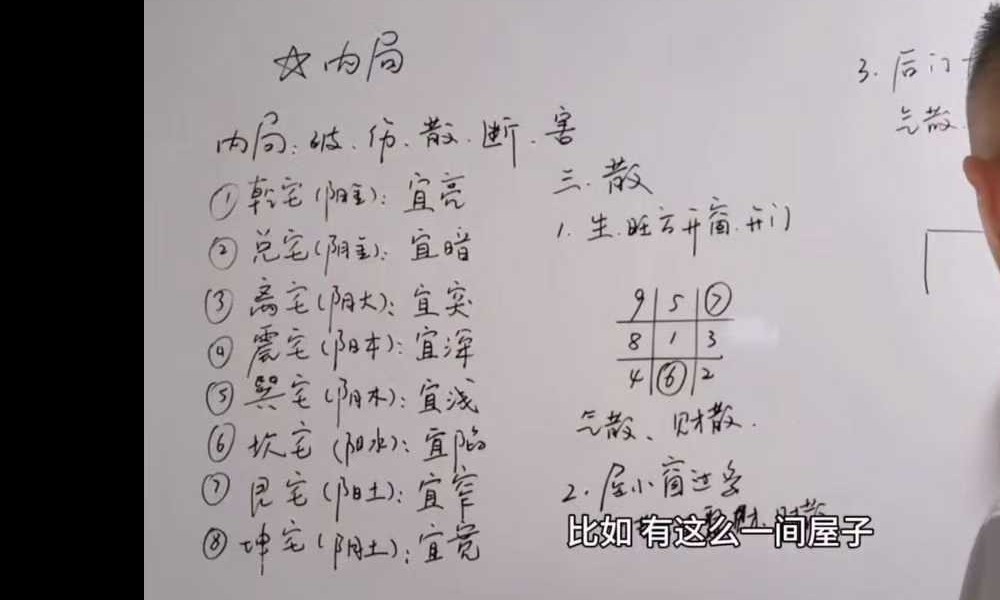 ☆内局
内局:破、伤、散、断、害
①乾宅(阳金):宜亮
②兑宅(阴金):宜暗
③离宅(阴火):宜突
④震宅(阳木):宜深
⑤巽宅(阴木):宜浅
⑥坎宅(阳水):宜陷
⑦艮宅(阳土):宜窄
⑧坤宅(阴土):宜宽
三.散
1.生.旺方开窗.开门
9 5 ⑦
8 1 3
4 ⑥ 2
气散、财散.
2.屋小窗过多
3.后门
气散
比如 有这么一间屋子